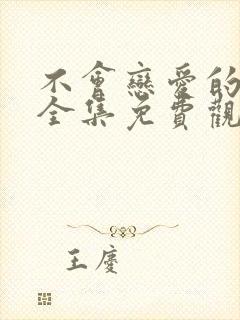 不會戀愛的
全集免費觀
王慶